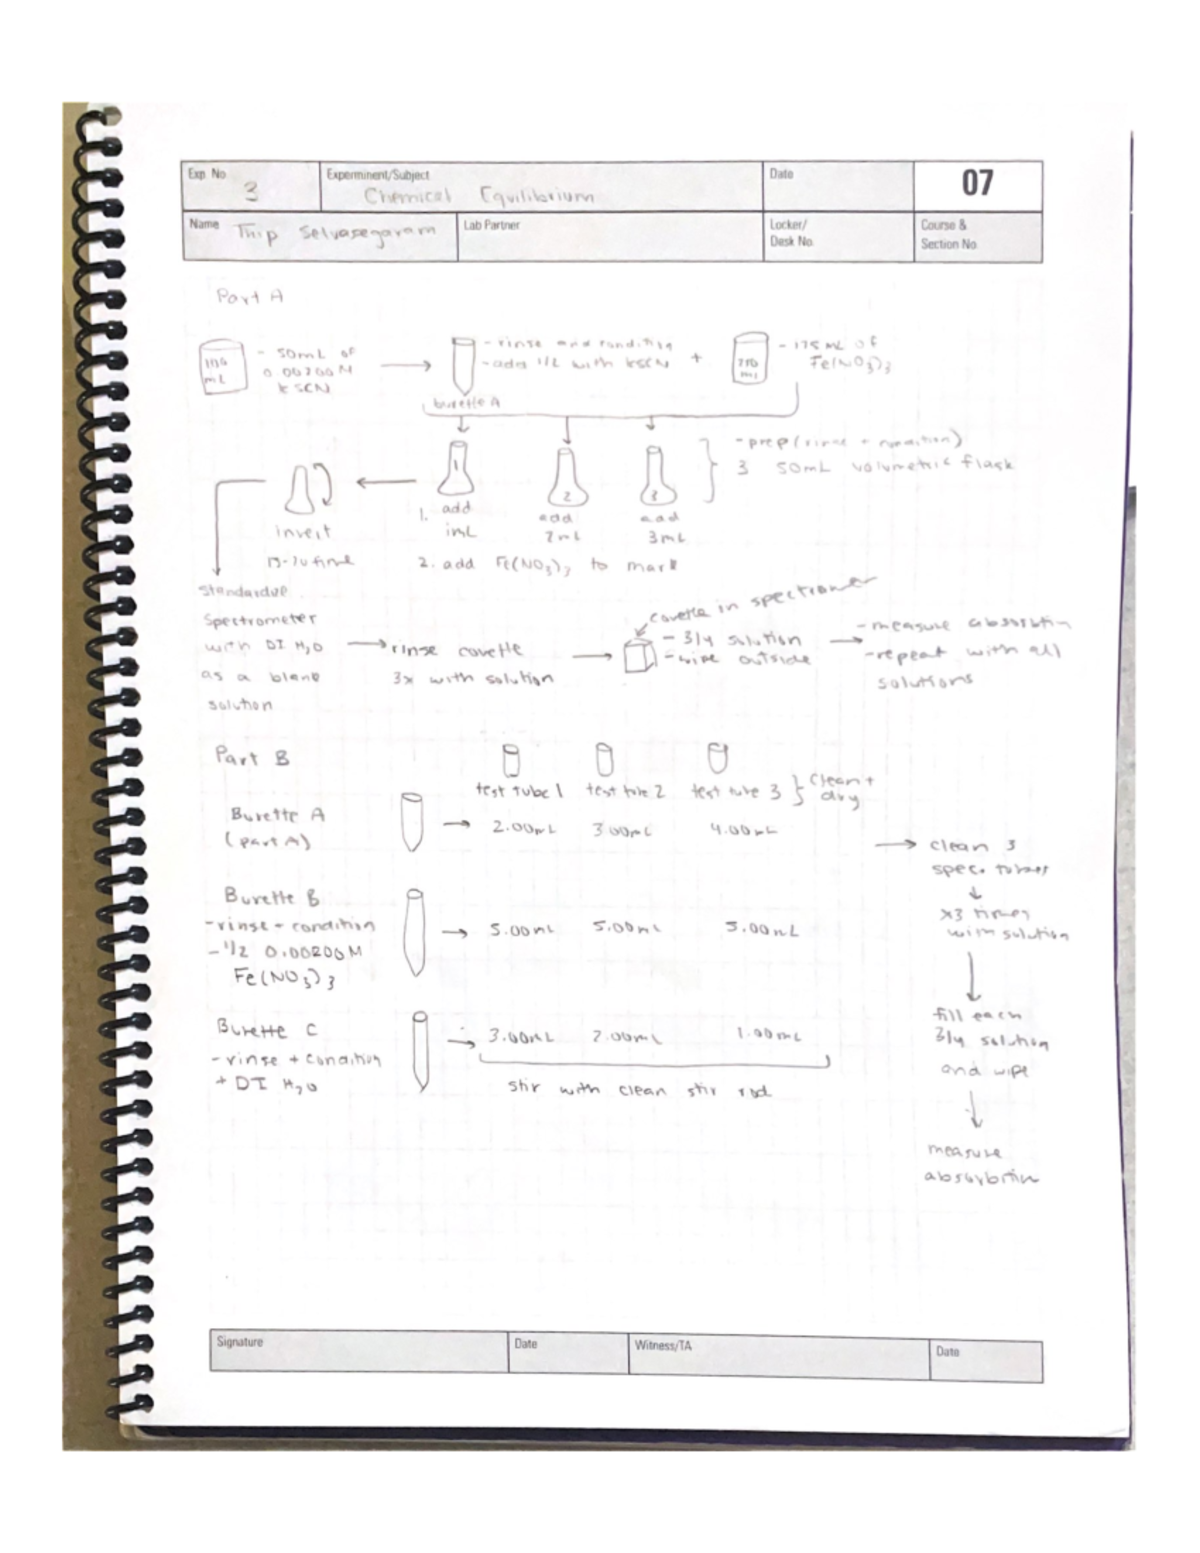 Exp. No
3
Experminent/Subject
Chemical Equilibrium
Date
07
Name Thip Selvasegaram
Lab Partner
Locker/
Desk No.
Course &
Section No.
Part A
100
mL
- 50mL of
0.00200M
KSCN
- rinse and condition
- add 1/2 with KSCN +
burette A
250
mL
- 175 mL of
Fe(NO3)3
1
2
3
- prep (rinse + condition)
3 50mL volumetric flask
invert
1. add
1mL
add
2mL
add
3mL
2. add Fe(NO3)3 to mark
Spectrometer
with DI H2O
as a blank
solution
rinse cuvette
3x with solution
cuvette in spectrometer
- 3/4 solution
- wipe outside
- measure absorbtion
- repeat with all
solutions
Part B
test tube 1 test tube 2 test tube 3
clean +
dry
Burette A
(part A)
2.00mL 3.00mL 4.00mL
Burette B
- rinse - condition
- 1/2 0.00200M
Fe(NO3)3
5.00mL 5.00mL 5.00mL
Burette C
- rinse + condition
+ DI H2O
3.00mL 2.00mL 1.00mL
stir with clean stir rod
clean 3
spec.
x3 times
with solution
fill each
3/4 solution
and wipe
measure
absorbtion
Signature
Date
Witness/TA
Date